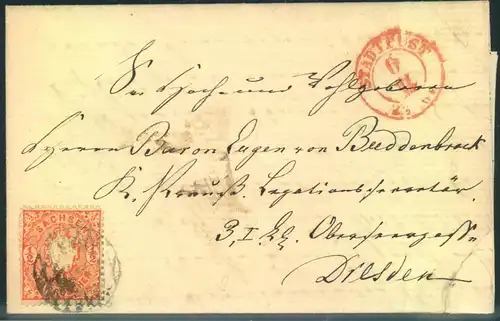 STADTPOST
Sr. Hoch und Wohlgeboren
Herrn Baron Eugen von Buddenbrock
K. Preuß. Legationssecretär
3, I.
Dresden
SACHSEN